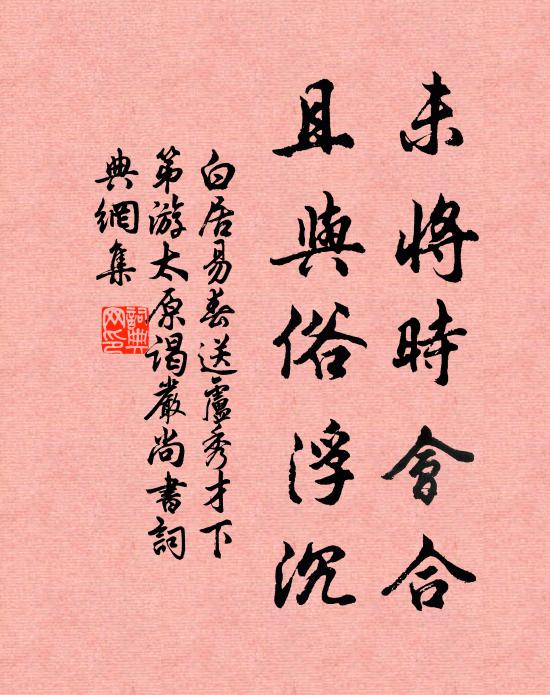 未將時會合
且與俗浮沉
白居易春送盧秀才下
第游太原謁嚴尚書詞
典網集
詞典網印